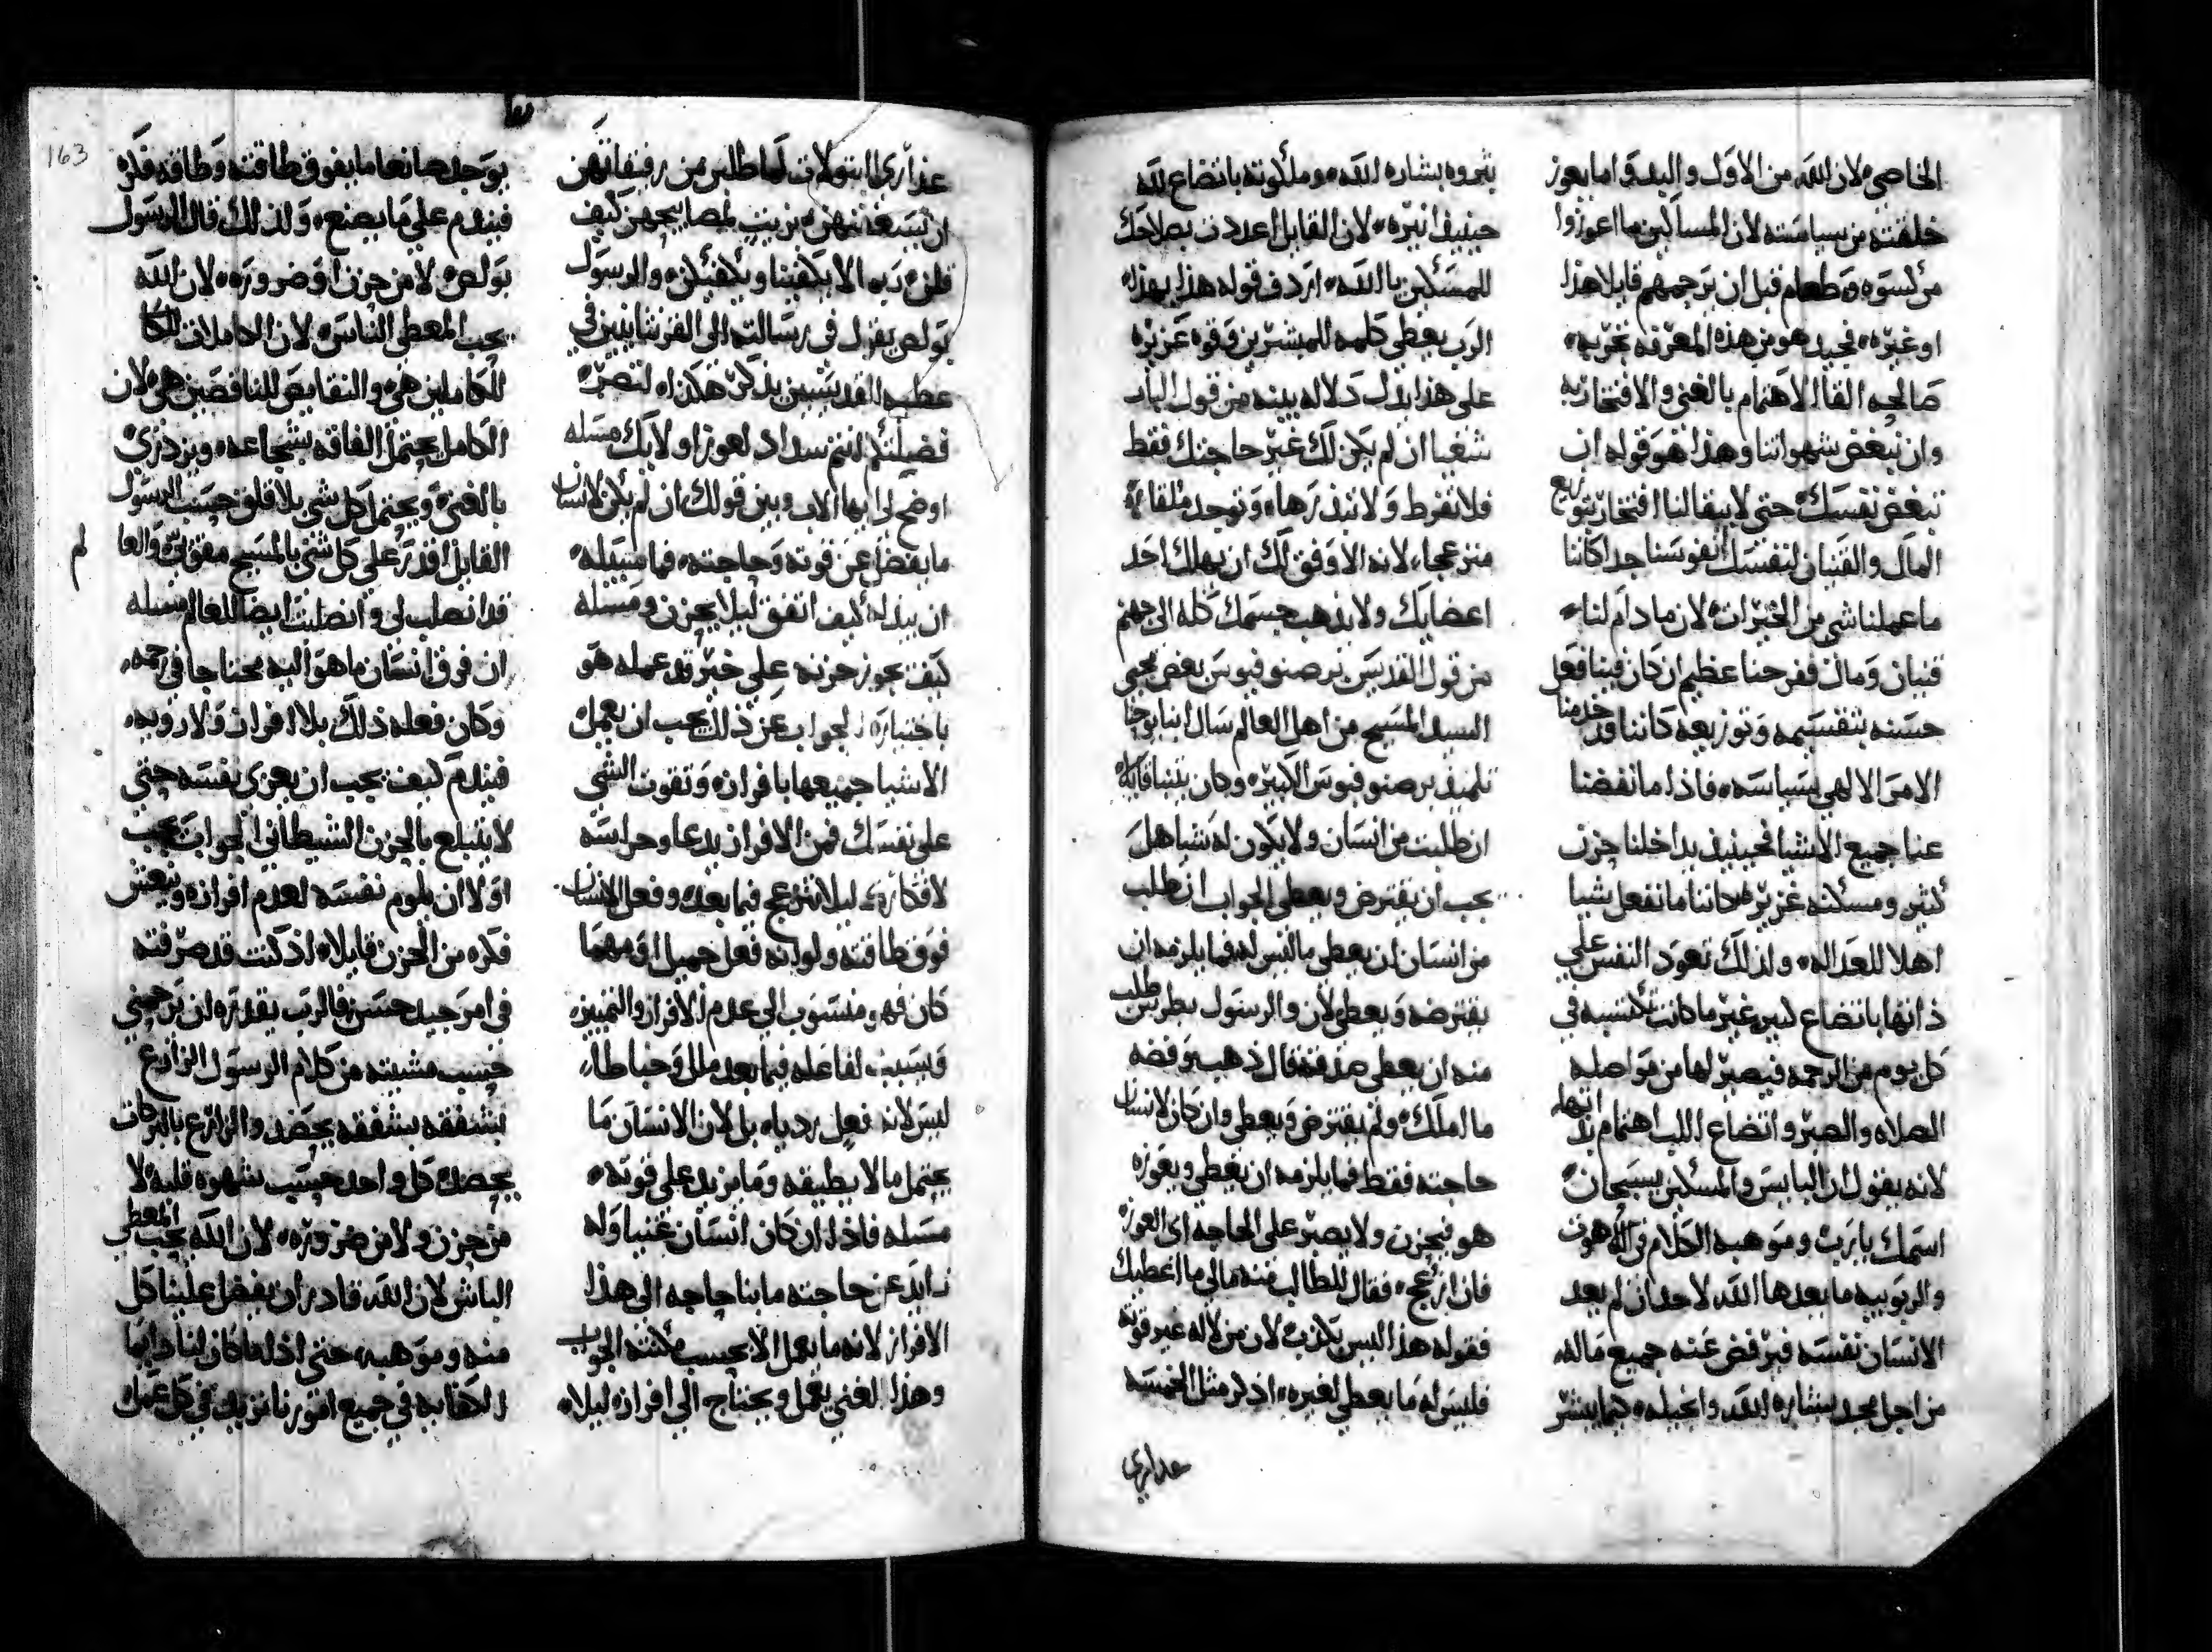 الخاصيه لان الله من الاول والبدو اما يعوز
خلقته من سياسته لان المساكين ما اعوزوا
من كسوه وطعام قبل ان يرحمهم قايلا هذا
او غيره فحيد هو من هذه المعرفه بخربه
صالحه القا الاهتمام بالغنى والافتخار به
وان نبغض شهواتنا وهذا هو قوله ان
تبغض نفسك حتى لا يبقا لنا افتخار بتوزيع
المال والقنيان لنفسك نفوسنا جدا كاننا
ما عملنا شي من الخيرات لان ما دام لنا
قنيان ومال ففرحنا عظيم ان كان فينا فعل
حسنه بتقسيمه وتوزيعه كاننا قد خدمنا
الامر الالهي بسياسه فاذا ما نفضنا
عنا جميع الاشيا فحينيذ يداخلنا حزن
كثير ومسكنه غزيره كاننا ما نفعل شيا
اهلا للعداله ولذلك تعود النفس على
ذاتها باتضاع كبير غير ما كانت تكتسبه في
كل يوم من الرحمه فيصير لها من مواصله
الصلاه والصبر واتضاع اللب اهتمام بذاتها
لانه يقول ان البايس والمسكين يسبحان
اسمك يا رب وموهبه الكلام في اللاهوت
والربوبيه ما يعدها الله لاحد ان لم يعد
الانسان نفسه فيرفض عنه جميع ماله
من اجل مجد بشاره الله وانجيله كيما يبشر
بثروه بشاره الله وملكوته باتضاع لله
حينيذ انيره لان القايل اعددت بصلاحك
للمسكين يا الله اردف قوله هذا بهذا
الرب يعطي كلمه للمبشرين وقوه غزيره
على هذا يدل دلاله بينه من قول الباب
شغيا ان لم يكن لك غير حاجتك فقط
فلا تفرط ولا تبذرها وتوجد ملقاه
منزعجا لانه الاوفق لك ان يهلك احد
اعضايك ولا يذهب جسمك كله الى جهنم
من قول القديس برصنوفيوس بعض محبي
السيد المسيح من اهل العالم سال ابنا يوحنا
تلميذ برصنوفيوس الكبير وكان بنبا قايلا
ان طلبت من انسان ولا يكون له شيا هل
يجب ان يقترض ويعطي الجواب ان طلب
من انسان ان يعطي ما ليس له فما يلزمه ان
يقترضه ويعطي لان والرسول بطرس طلب
منه ان يعطي صدقه قال ذهب وفضه
ما املك ولم يقترض ويعطي وان كان لانسان
حاجته فقط فما يلزمه ان يعطي ويعوزه
هو فيحزن ولا يصبر على الحاجه اي العوزه
فان ازعج فقال للطالب منه ما لي ما اعطيك
فقوله هذا ليس بكذب لان من لا له غير قوته
فليس له ما يعطي لغيره اذكر مثل الخمسه
عداري
عذاري البتولات لما طلبن من رفيقاتهن
ان تسعفنهن بزيت لمصابيحهن كيف
قلن ربه الا يكفينا ويكفيكن والرسول
بولص يقول في رسالته الى القرنثانيين في
عطيه القديسين يذكر هكذا لتصر
فضيلتكم لتتم سداد لعوز اولايك مسله
اوضح لي ايها الاب وبين قولك ان لم يكن لانسان
ما يفضل عن قوته وحاجته فما سبيله
ان يبذله كيف اتفق ليلا يحزن ومسله
كيف يجوز حزنه على خير قد عمله هو
باختياره الجواب عن ذلك يجب ان يعمل
الاشيا جميعها بافراز وتقوت الشي
على نفسك فمن الافراز يدعا وحراسه
لافكاره ليلا تنزعج فيما بعد وفعل الانسان
فوق طاقته ولو انه فعل جميل او مهما
كان فهو منسوب الى عدم الافراز والتمييز
ويسبب لفاعله فيما بعد ملل وخباطا
ليس لانه فعل رديا بل لان الانسان ما
يحتمل ما لا يطيقه وما يزيد على قوته
مسله فاذا ان كان انسان غنيا وله
زايد عن حاجته ما بنا حاجه الى هذا
الافراز لانه ما يعمل الا بحسب مكنته الجواب
وهذا الغني يعمل ويحتاج الى افراز ليلا
يوجد صانعا ما يفوق طاقته وطاقه فكره
فيندم على ما يصنع ولذلك قال الرسول
بولص لا من حزن او ضروره لان الله
يحب المعطي الناس لان الكاملات للكا
للكاملين هي والنقايص للناقصين هي لان
الكامل يحتمل الفاقه بشجاعه ويزدري
بالغنى ويحتمل كل شي بلا قلق حسب الرسول
القايل اقدر على كل شي بالمسيح مقويني والعا
لم
قد انصلب لي وانصلبت ايضا للعالم مسله
ان فرق انسان ما هو اليه محتاجا في رحمه
وكان فعله ذلك بلا افراز ولا رويه
فيندم كيف يجب ان يعزي نفسه حتى
لا يبتلع بالحزن الشيطاني الجواب يجب
اولا ان يلوم نفسه لعدم افرازه وينعش
فكره من الحزن قايلا اذ كنت قد صرفته
في امر جيد حسن فالرب يقدره ان يرحمني
حسب مشيته من كلام الرسول الزارع
بشفقه بشفقه يحصد والزارع بالبركات
يحصد كل واحد حسب شهوه قلبه لا
من حزن ولا من ضروره لان الله يحب المعطي
الباش لان الله قادر ان يفضل علينا كل
منه وموهبه حتى اذا ما كان لنا دايما
الكفايه في جميع امورنا نزيد في كل عمل
163